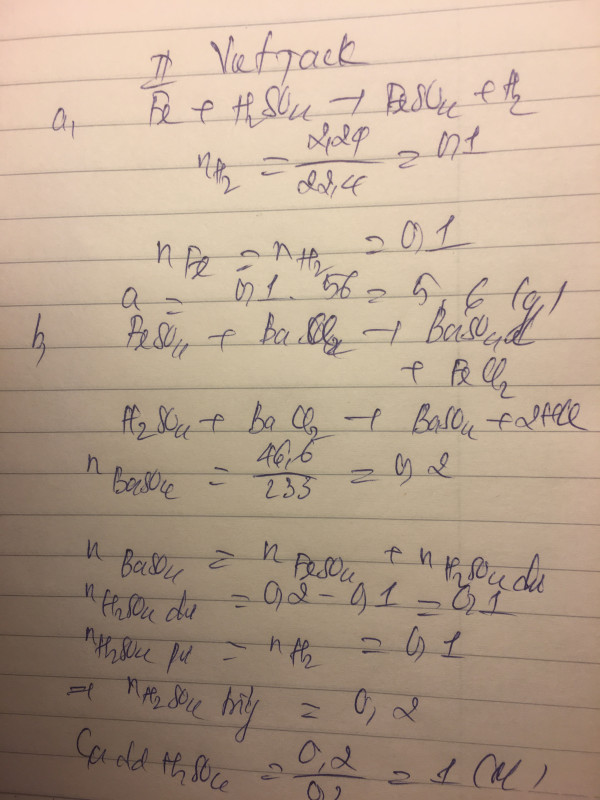 VietJack
a, Fe + H2SO4 → FeSO4 + H2
nH2 = 2,24 / 22,4 = 0,1
nFe = nH2 = 0,1
a = 0,1 . 56 = 5,6 (g)
b, FeSO4 + BaCl2 → BaSO4↓
+ FeCl2
H2SO4 + BaCl2 → BaSO4 + 2HCl
nBaSO4 = 46,6 / 233 = 0,2
nBaSO4 = nFeSO4 + nH2SO4 dư
nH2SO4 dư = 0,2 - 0,1 = 0,1
nH2SO4 pư = nH2 = 0,1
⇒ nH2SO4 = 0,2
dd H2SO4 = 0,2 / = 1 (M)